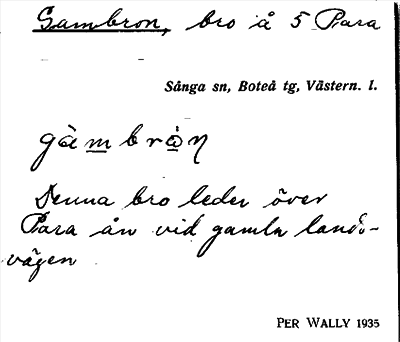 Gambron, bro å 5 Para
Sånga sn, Boteå tg, Västern. l.
gàmbròn
Denna bro leder över
Para ån vid gamla lands-
vägen
PER WALLY 1935